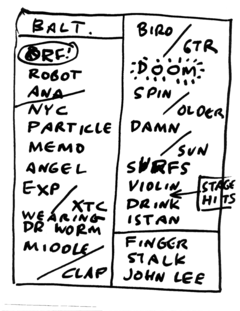 BALT.
ORF!
ROBOT
ANA
NYC
PARTICLE
MEMO
ANGEL
EXP / XTC
WEARING
DR WORM
MIDDLE / CLAP
BIRD / STR
DOOM
SPIN / OLDER
DAMN / SUN
SURFS
VIOLIN
DRINK
ISTAN
STAGE
HITS
FINGER
STALK
JOHN LEE